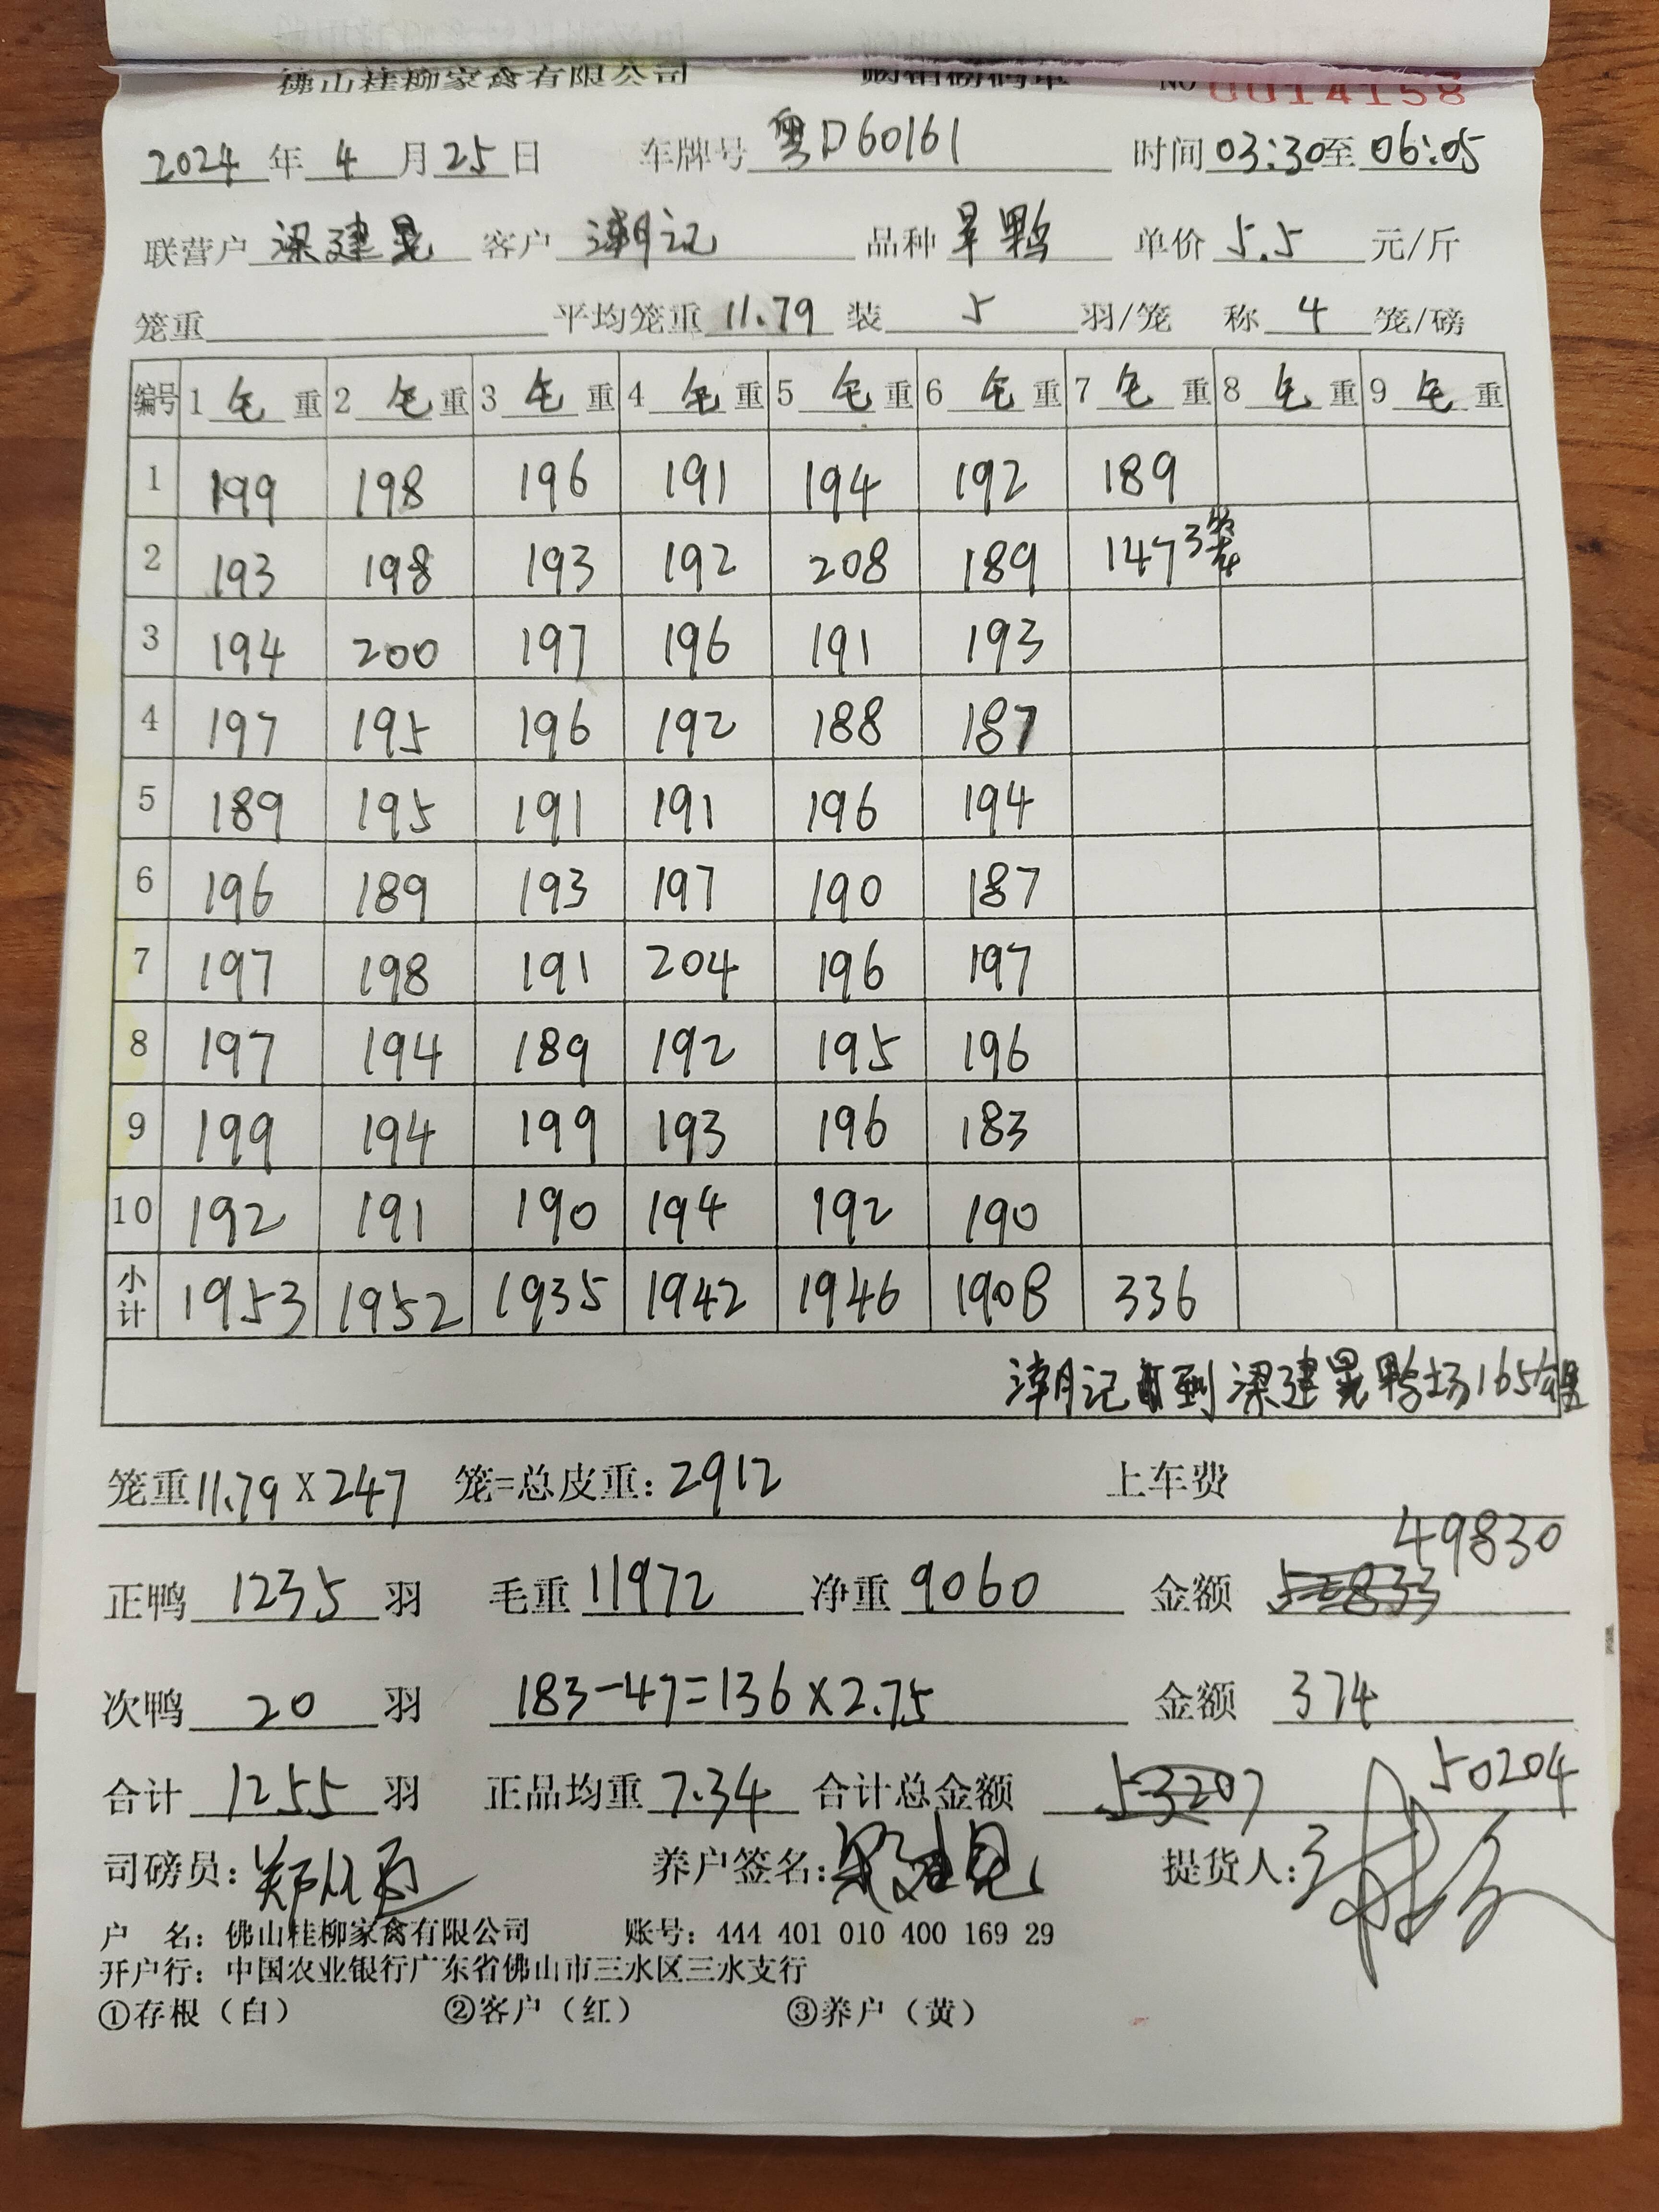 佛山桂柳家禽有限公司 NO 0014158
2024 年 4 月 25 日 车牌号 粤D60161 时间 03:30 至 06:05
联营户 梁建晃 客户 潮记 品种 旱鸭 单价 5.5 元/斤
笼重 平均笼重 11.79 装 5 羽/笼 称 4 笼/磅
编号 1 毛 重 2 毛 重 3 毛 重 4 毛 重 5 毛 重 6 毛 重 7 毛 重 8 毛 重 9 毛 重
1 199 198 196 191 194 192 189
2 193 198 193 192 208 189 147 3笼
3 194 200 197 196 191 193
4 197 195 196 192 188 187
5 189 195 191 191 196 194
6 196 189 193 197 190 187
7 197 198 191 204 196 197
8 197 194 189 192 195 196
9 199 194 199 193 196 183
10 192 191 190 194 192 190
小计 1953 1952 1935 1942 1946 1908 336
潮记 到梁建晃鸭场165
笼重 11.79 X 247 笼=总皮重: 2912 上车费
49830
正鸭 1235 羽 毛重 11972 净重 9060 金额 52833
次鸭 20 羽 183-47=136×2.75 金额 374
合计 1255 羽 正品均重 7.34 合计总金额 53207 50204
司磅员: 养户签名: 提货人:
户 名: 佛山桂柳家禽有限公司 账号: 444 401 010 400 169 29
开户行: 中国农业银行广东省佛山市三水区三水支行
①存根（白） ②客户（红） ③养户（黄）